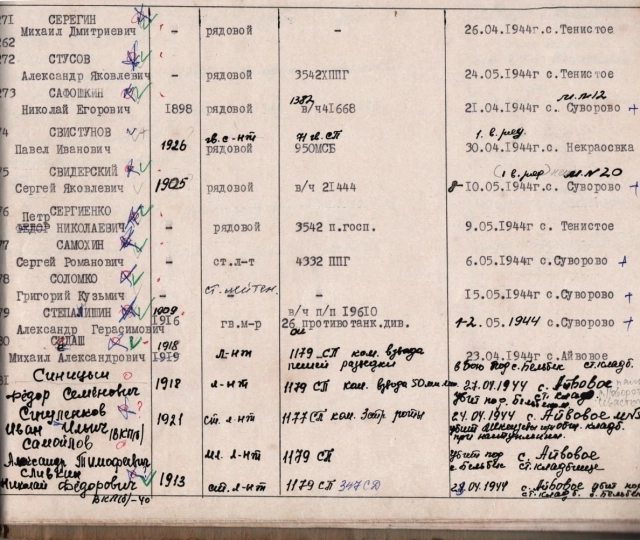 271 СЕРЕГИН
Михаил Дмитриевич - рядовой - 26.04.1944г.с.Тенистое
262
272 СТУСОВ
Александр Яковлевич - рядовой 3542ХППГ 24.05.1944г с.Тенистое
273 САФОШКИН 1382 м.N12
Николай Егорович 1898 рядовой в/ч41668 21.04.1944г с. Суворово +
74 СВИСТУНОВ гв.с-нт 71 гв.СП 1. в. ряд.
Павел Иванович 1926 рядовой 950МСБ 30.04.1944г с. Некрасовка
75 СВИДЕРСКИЙ (1 в.ряд) м.N20
Сергей Яковлевич 1905 рядовой в/ч 21444 8-10.05.1944г с. Суворово +
76 СЕРГИЕНКО
Петр
НИКОЛАЕВИЧ - рядовой 3542 п.госп. 9.05.1944г с. Тенистое
77 САМОХИН
Сергей Романович - ст.л-т 4332 ППГ 6.05.1944г с.Суворово +
78 СОЛОМКО
Григорий Кузьмич - ст. лейтен. - 15.05.1944г с.Суворово +
79 СТЕПАЛИШИН 1909 в/ч п/п 19610
Александр Герасимович 1916 гв.м-р 26 противотанк.див. 1-2.05.1944 с.Суворово +
80 СИДАШ 1918
Михаил Александрович 1919 л-нт 1179 СП ком. взвода пешей разведки 23.04.1944г с.Айвовое
в бою пор с. Бельбек ст. кладб.
81 Синицын
Фёдор Семёнович 1918 л-нт 1179 СП ком. взвода 50мм 27.04.1944 с. Айвовое
убит пор. Бельбек ст. клад
Синуленков
Иван Ильич ВКП/б/ 1921 ст. л-нт 1177 СП ком. 3стр роты 24.04.1944 с. Айвовое
Самойлов
Александр Тимофеевич мл. л-нт 1179 СП убит пор с. Айвовое
с. Бельбек ст. кладбище
Сливкин
Николай Фёдорович 1913 ст. л-нт 1179 СП 347 СД 28.04.1944 с. Айвовое убит пор
ВКП(б)-40 ст. кладб. с. Бельбек